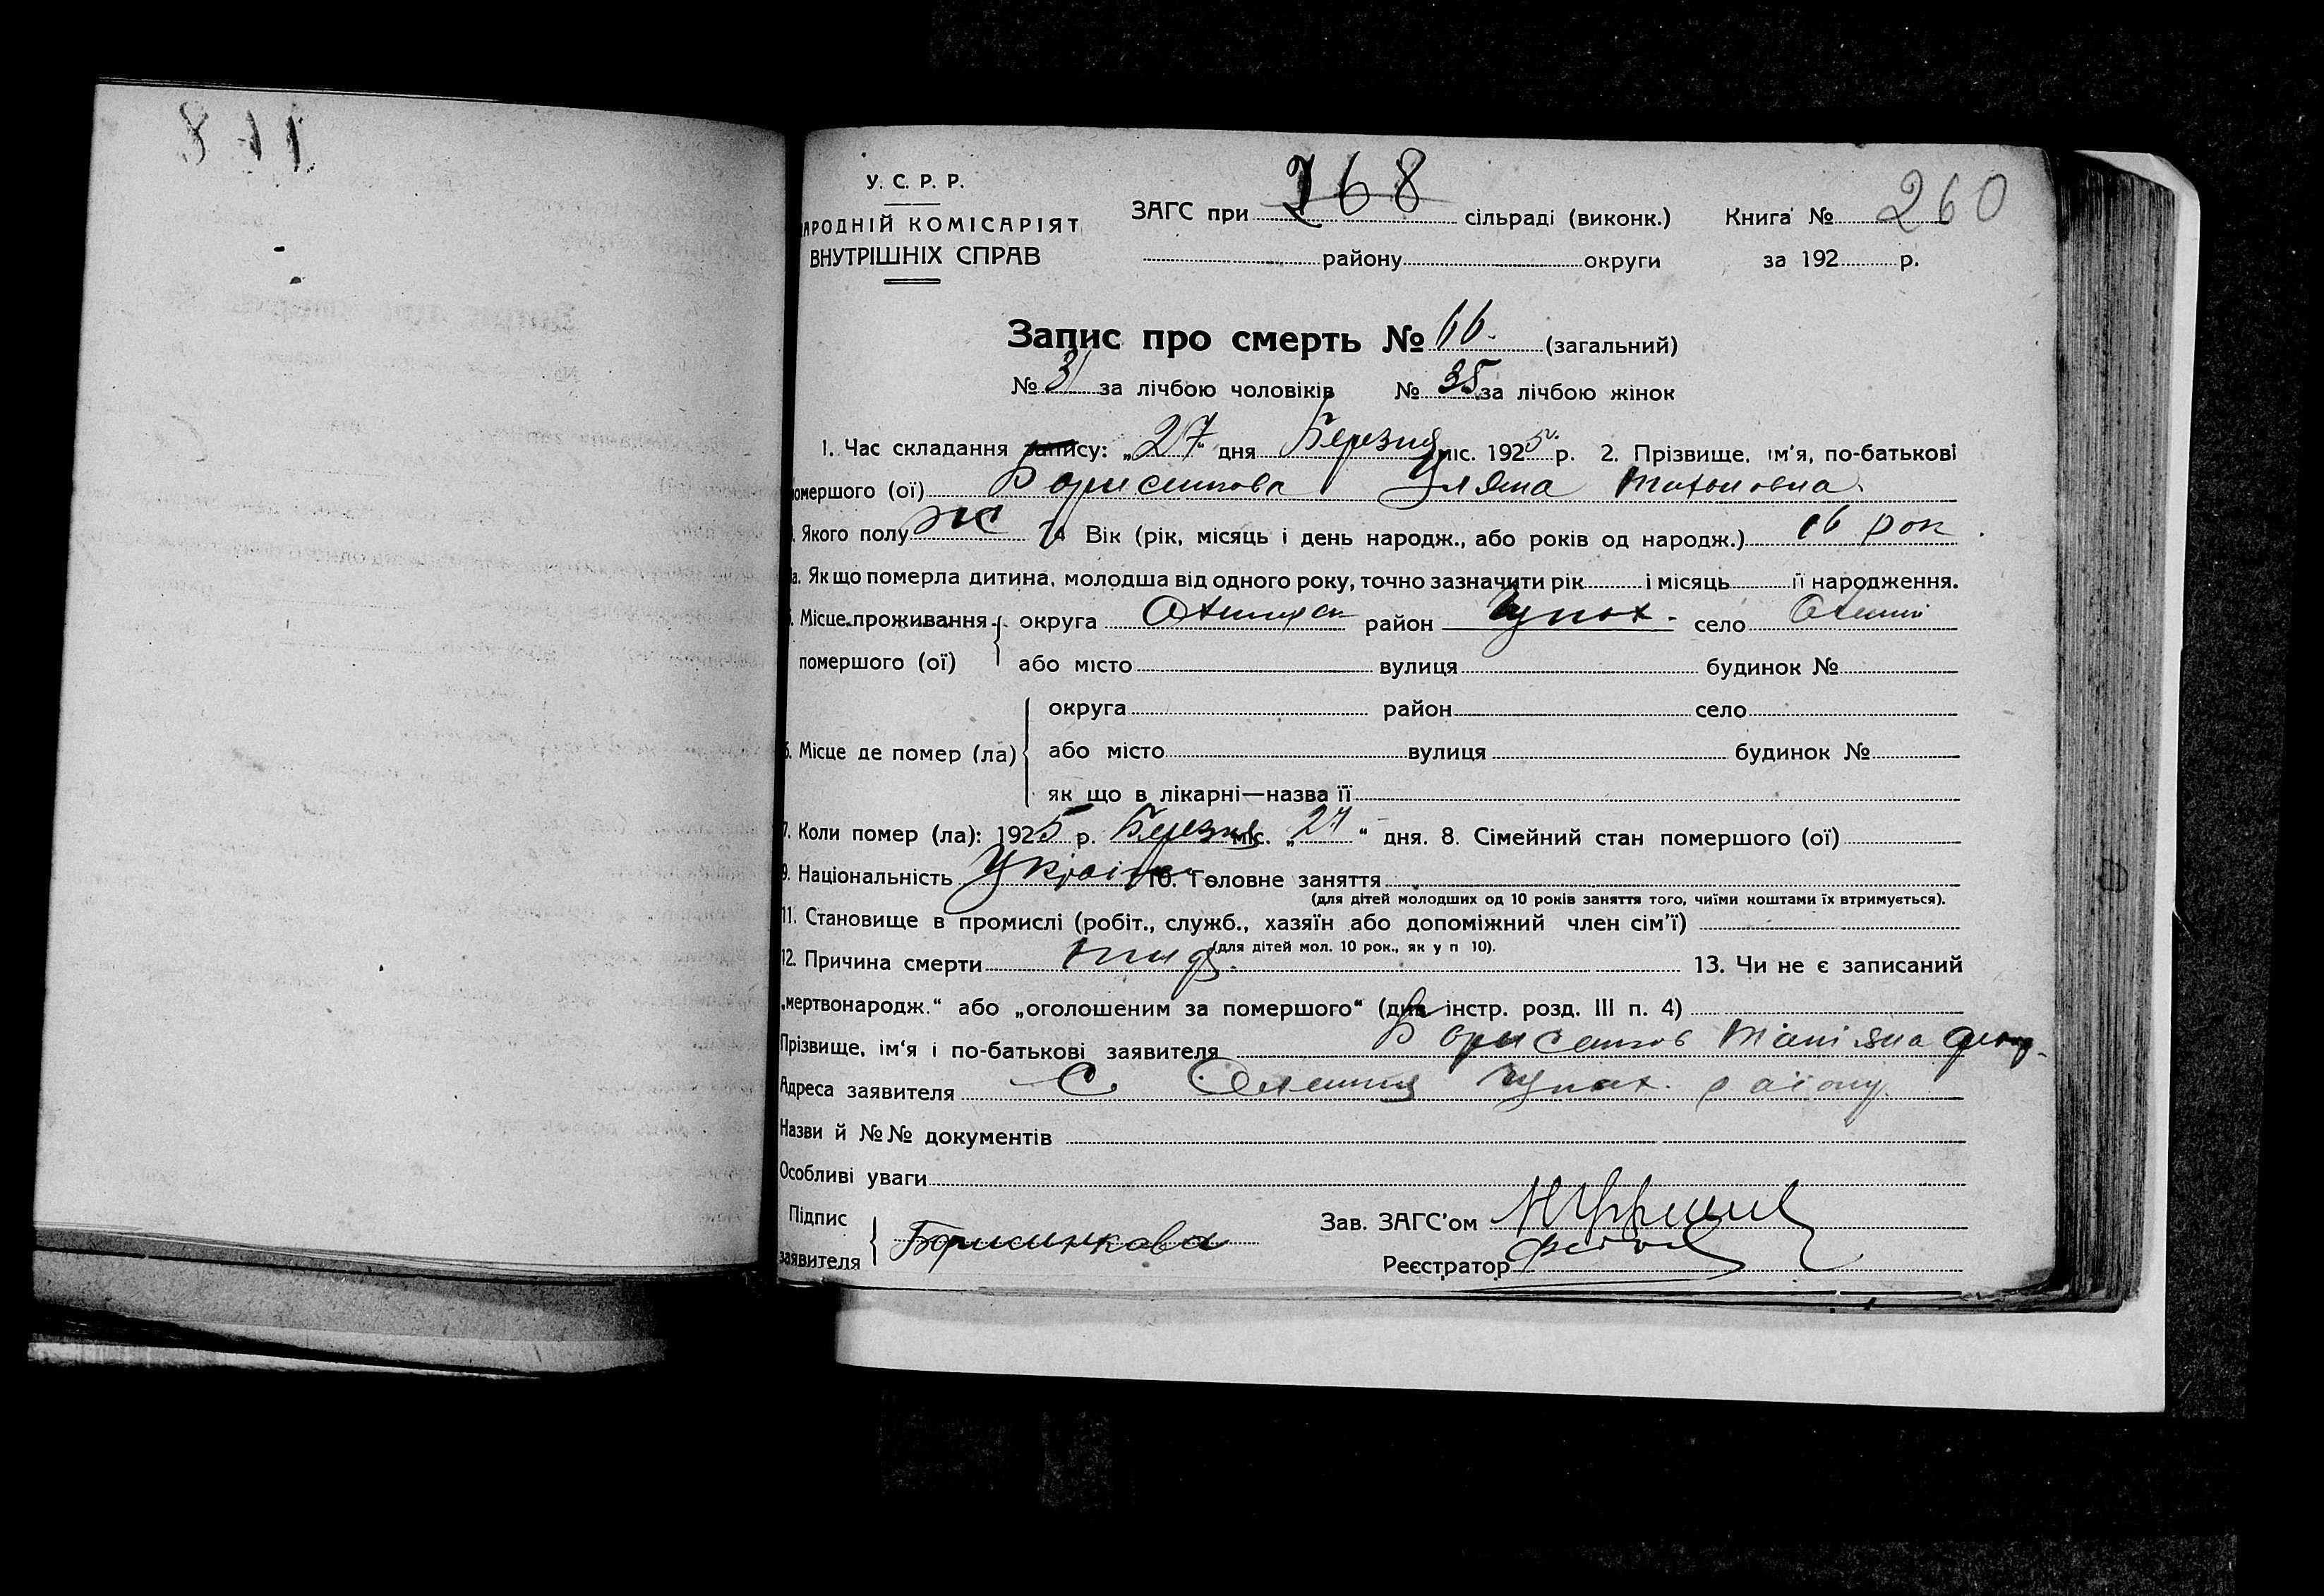 811
У. С. Р. Р.
АРОДНІЙ КОМІСАРІЯТ
ВНУТРІШНІХ СПРАВ
ЗАГС при 268 сільраді (виконк.) Книга № 260
району округи за 192 р.
Запис про смерть № 66. (загальний)
№ 31 за лічбою чоловіків № 35 за лічбою жінок
1. Час складання запису: „27“ дня Березня міс. 1925 р. 2. Прізвище, ім'я, по-батькові
омершого (ої) Уляна
Якого полу ж 4 Вік (рік, місяць і день народж., або років од народж.) 16 рок
а. Як що померла дитина, молодша від одного року, точно зазначити рік і місяць її народження.
5. Місце проживання округа район село
помершого (ої) або місто вулиця будинок №
округа район село
6. Місце де помер (ла) або місто вулиця будинок №
як що в лікарні—назва її
7. Коли помер (ла): 1925 р. Березня міс. „27“ дня. 8. Сімейний стан помершого (ої)
9. Національність Україн 10. Головне заняття
(для дітей молодших од 10 років заняття того, чиїми коштами їх втримується).
11. Становище в промислі (робіт., служб., хазяїн або допоміжний член сім'ї)
(для дітей мол. 10 рок., як у п 10).
12. Причина смерти тиф. 13. Чи не є записаний
„мертвонародж.“ або „оголошеним за помершого“ (див інстр. розд. III п. 4)
Прізвище, ім'я і по-батькові заявителя
Адреса заявителя С району
Назви й №№ документів
Особливі уваги
Підпис
заявителя
Зав. ЗАГС'ом
Реєстратор